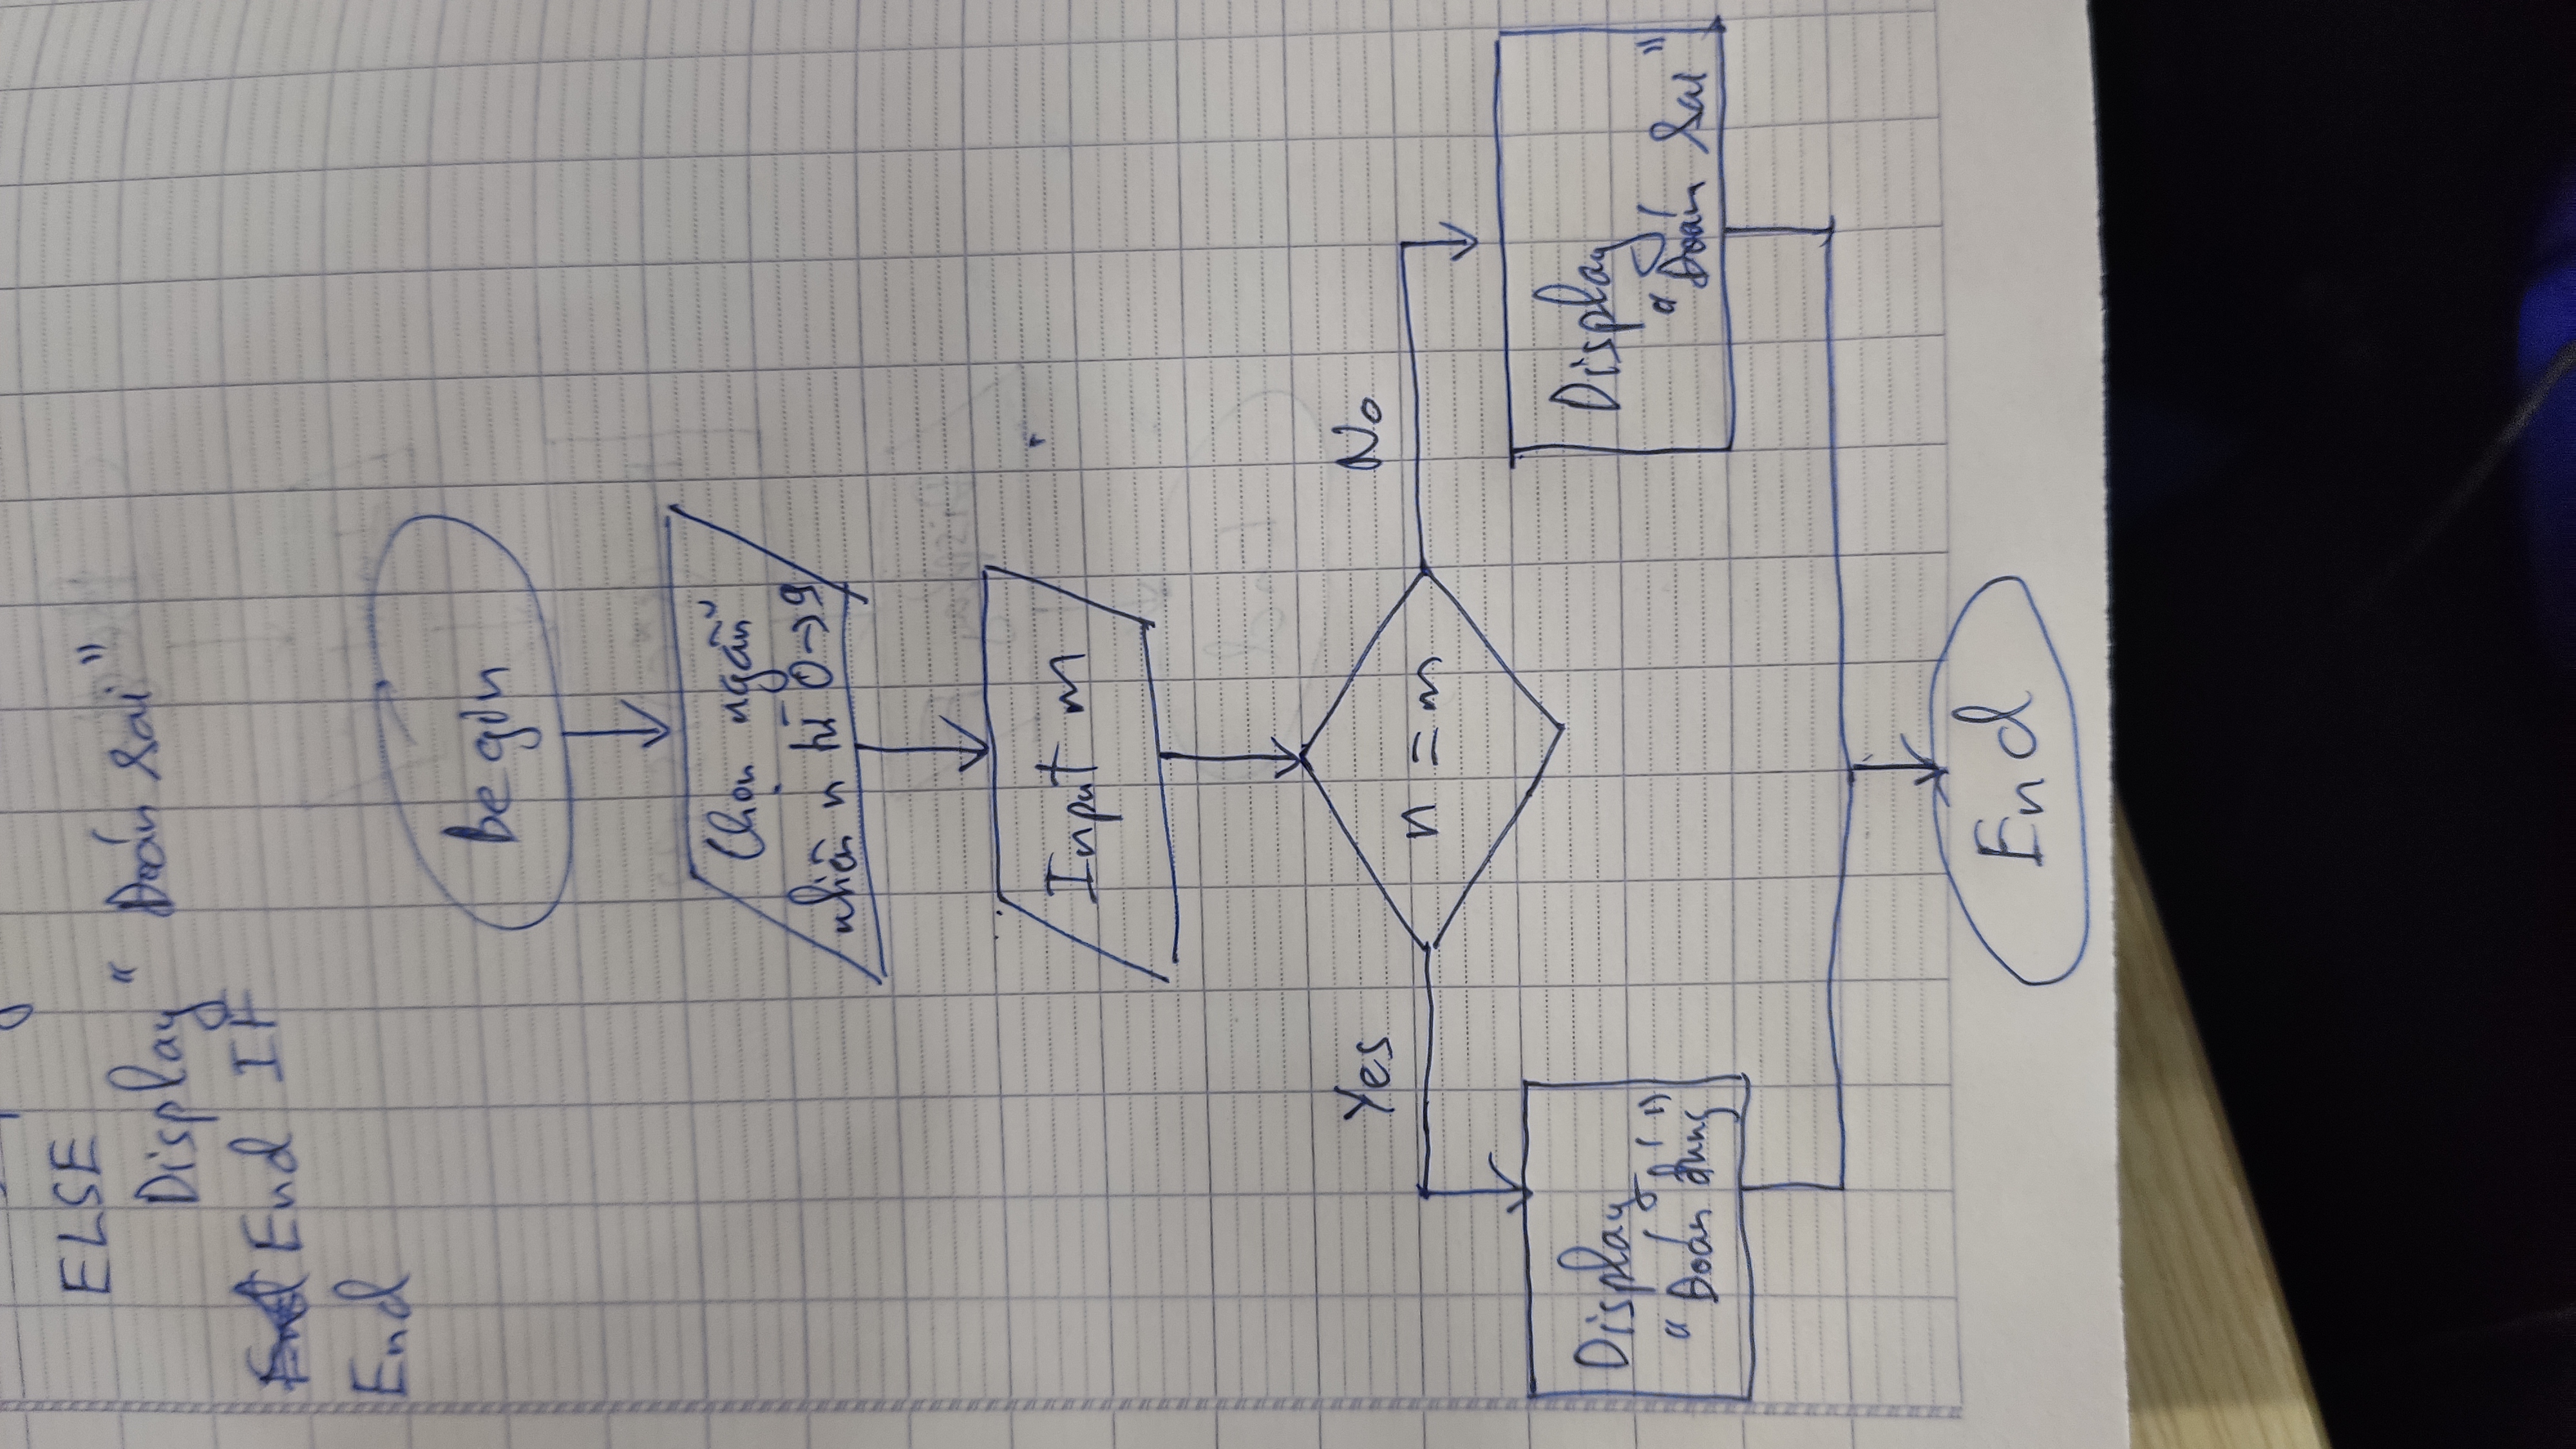 ELSE
Display "Đoán sai"
End IF
End
Begin
Chọn ngẫu
nhiên n từ 0→9
Input m
Yes
No
n = m
Display
"Đoán đúng"
Display
"Đoán sai"
End